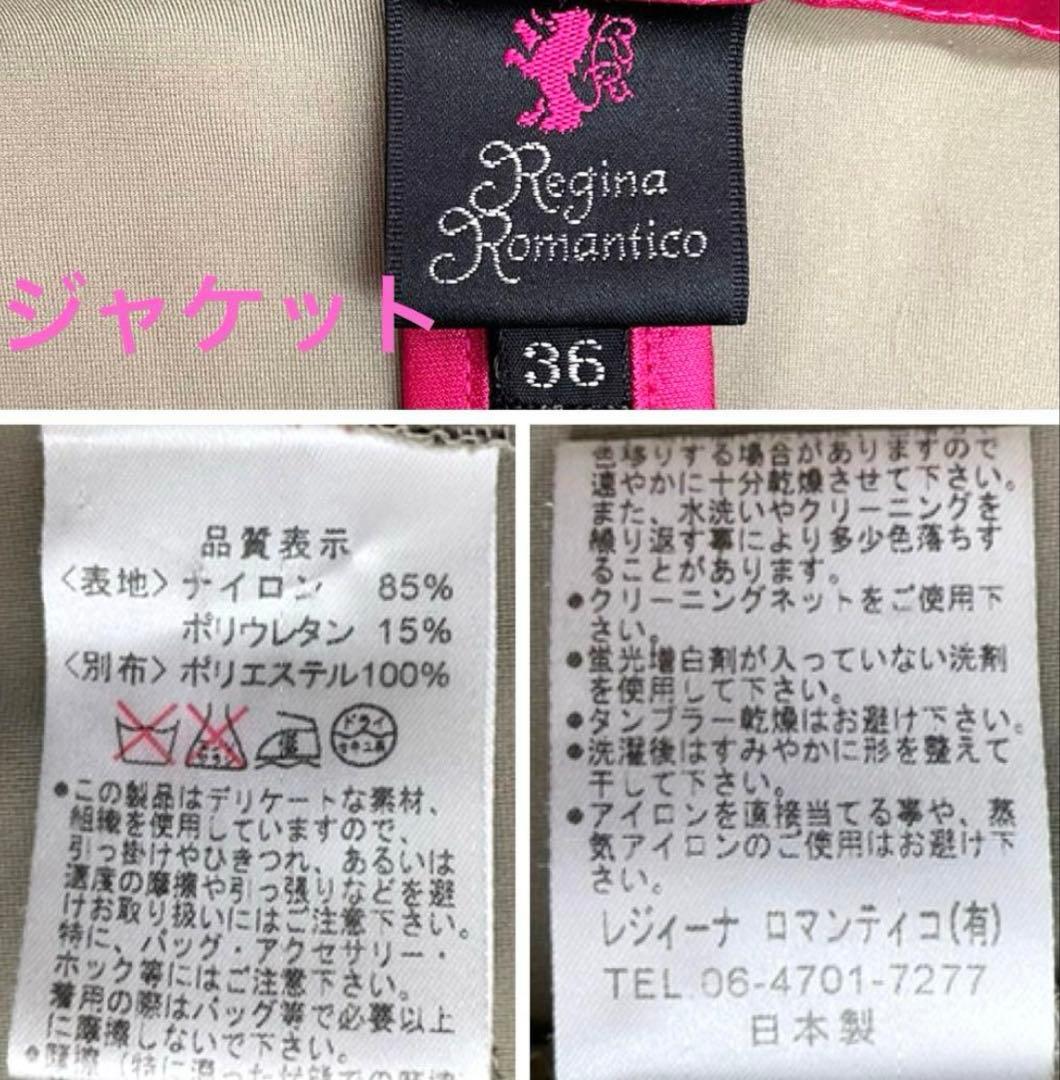 Regina
Romantico
ジャケット
36
品質表示
〈表地〉ナイロン 85%
ポリウレタン 15%
〈別布〉ポリエステル100%
ドライ
セキユ系
この製品はデリケートな素材、
組織を使用していますので、
引っ掛けやひきつれ、あるいは
過度の摩擦や引っ張りなどを避
けお取り扱いにはご注意下さい。
特に、バッグ・アクセサリー・
ホック等にはご注意下さい。
着用の際はバッグ等で必要以上
に摩擦しないで下さい。
色移りする場合がありますので
速やかに十分乾燥させて下さい。
また、水洗いやクリーニングを
繰り返す事により多少色落ちす
ることがあります。
●クリーニングネットをご使用下
さい。
●蛍光増白剤が入っていない洗剤
を使用して下さい。
●タンブラー乾燥はお避け下さい。
●洗濯後はすみやかに形を整えて
干して下さい。
●アイロンを直接当てる事や、蒸
気アイロンのご使用はお避け下
さい。
レジィーナ ロマンティコ(有)
TEL.06-4701-7277
日本製